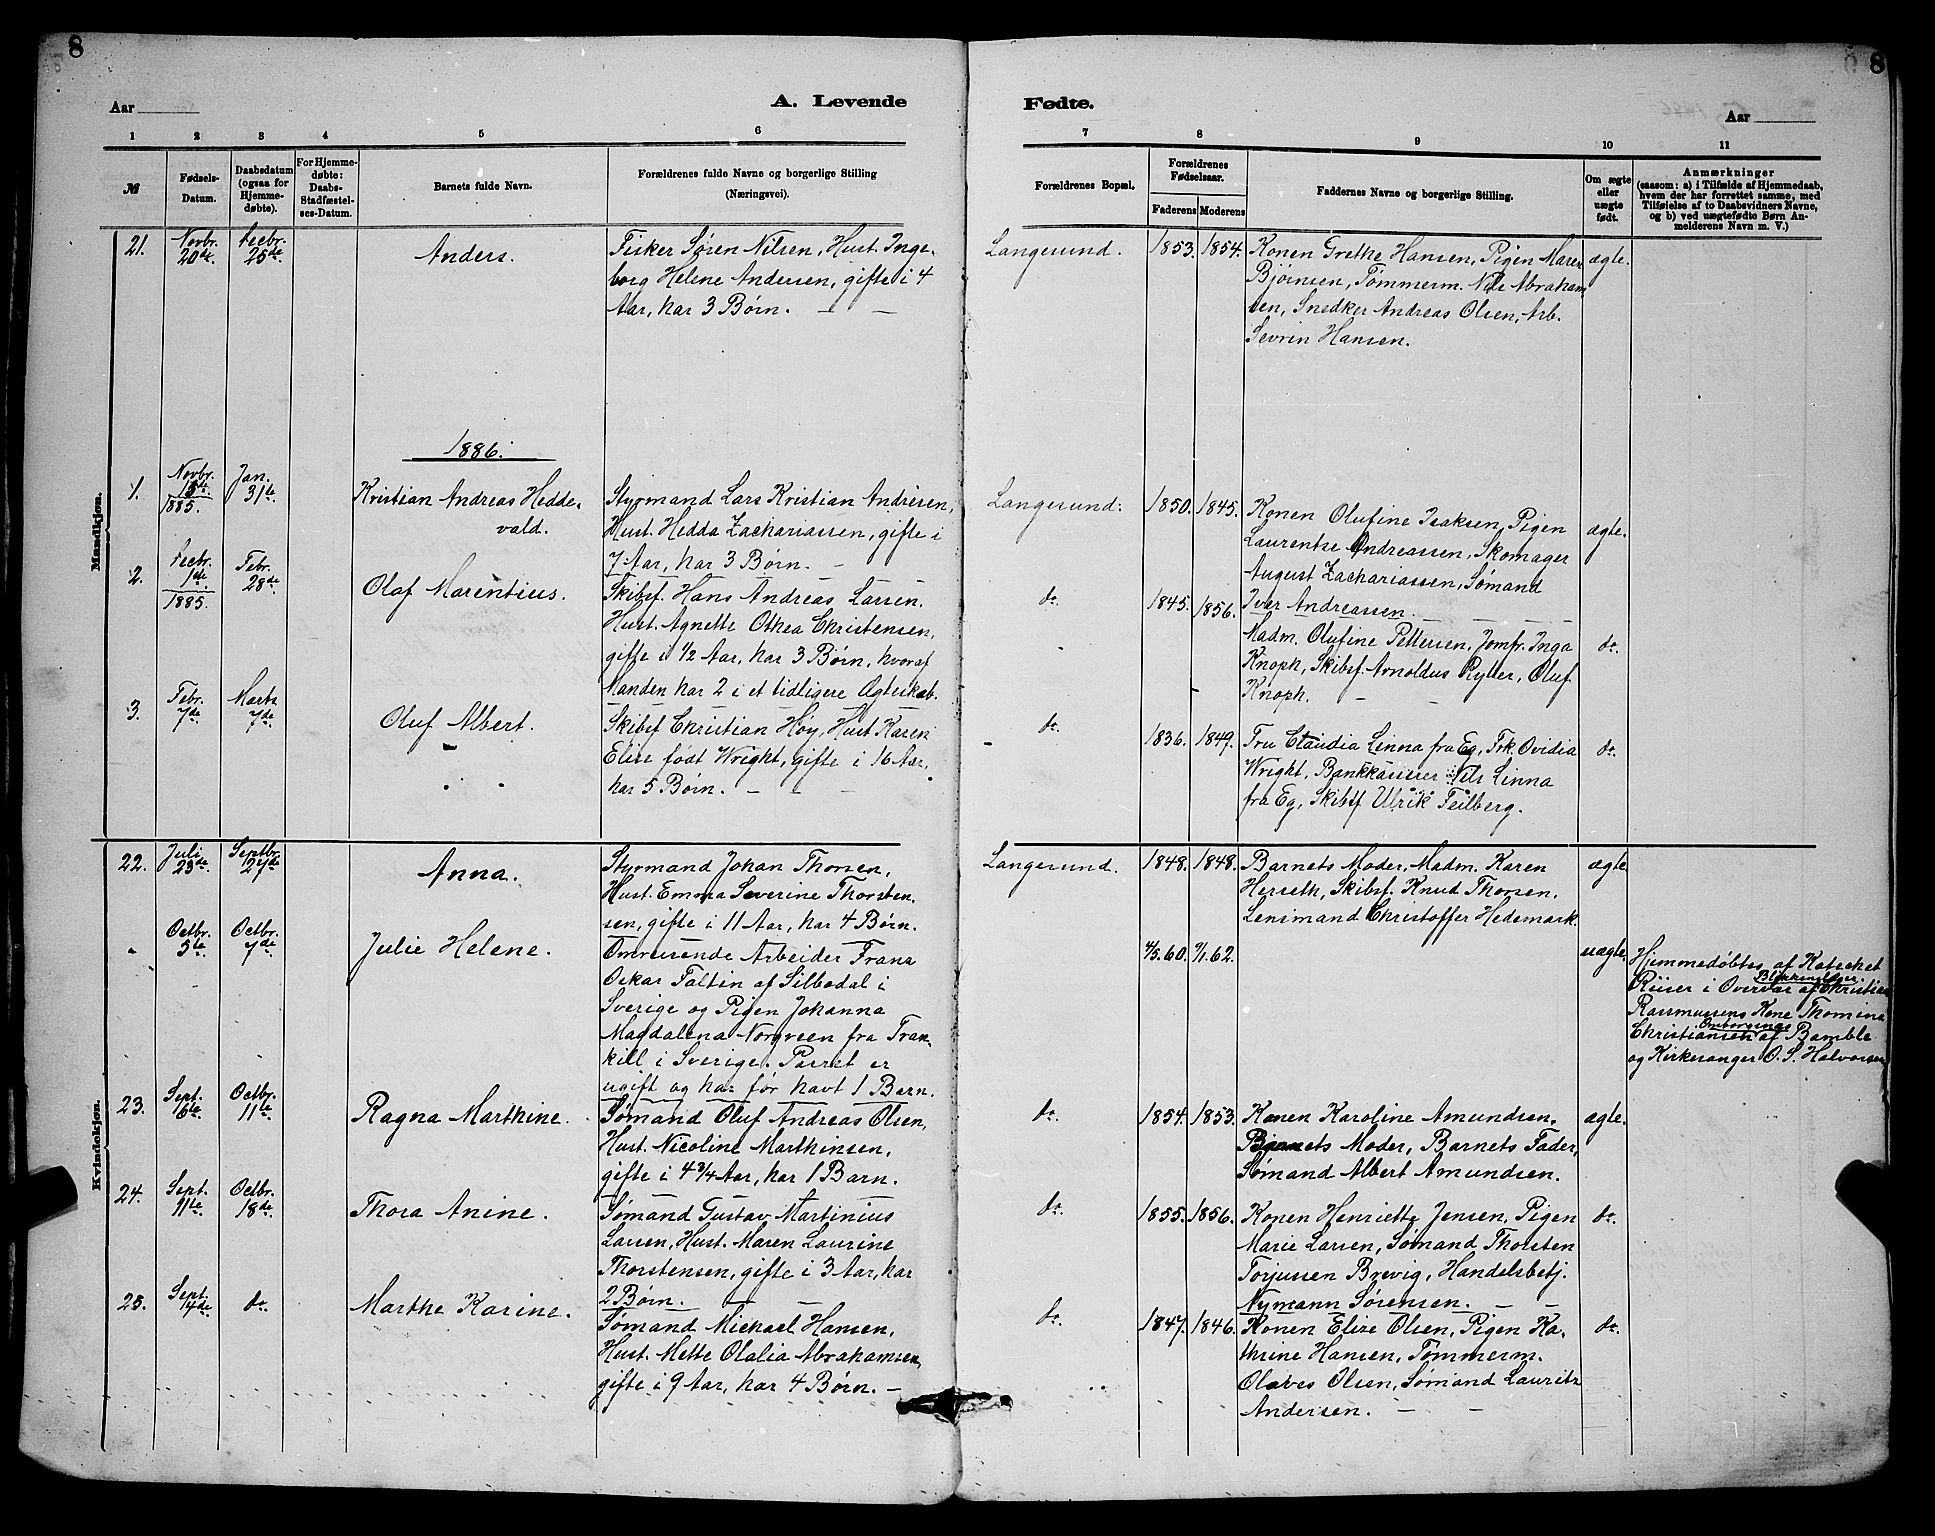 8
8
Aar
A. Levende
Fødte.
Aar
1 2 3 4 5 6 7 8 9 10 11
№
Fødsels-
Datum.
Daabsdatum
(ogsaa for
Hjemme-
døbte).
For Hjemme-
døbte:
Daabs-
Stadfæstel-
ses-Datum.
Barnets fulde Navn.
Forældrenes fulde Navne og borgerlige Stilling
(Næringsvei).
Forældrenes Bopæl.
Forældrenes
Fødselsaar.
Faderens Moderens
Faddernes Navne og borgerlige Stilling.
Om ægte
eller
uægte
født.
Anmærkninger
(saasom: a) i Tilfælde af Hjemmedaab,
hvem der har forrettet samme, med
Tilføielse af to Daabsvidners Navne,
og b) ved uægtefødte Børn An-
melderens Navn m. V.)
Mandkjøn.
21.
Novbr.
20de
Decbr.
25de
Anders.
Fisker Søren Nilsen, Hust. Inge-
borg Helene Andersen, gifte i 4
Aar, har 3 Børn. — —
Langesund.
1853. 1854.
Konen Grethe Hansen, Pigen Maren
Bjørnsen, Tømmerm. Nils Abraham
sen, Snedker Andreas Olsen, Arb.
Sevrin Hansen.
ægte.
1886.
1.
Novbr.
15de
1885.
Jan.
31te
Kristian Andreas Hedde-
vald.
Styrmand Lars Kristian Andresen,
Hust. Hedda Zachariassen, gifte i
7 Aar, har 3 Børn. —
Langesund.
1850. 1845.
Konen Olufine Isaksen, Pigen
Laurentse Andreassen, Skomager
August Zachariassen, Sømand
Iver Andreassen.
ægte.
2.
Decbr.
1ste
1885.
Febr.
28de
Olaf Marentius.
Skibsf. Hans Andreas Larsen.
Hust. Agnette Othea Christensen,
gifte i 1/2 Aar, har 3 Børn, hvoraf
Manden har 2 i et tidligere Ægteskab.
do.
1845. 1856.
Madm. Olufine Pettersen, Jomfr. Inga
Knoph, Skibsf. Arnoldus Rytter, Oluf
Knoph. — —
do.
3.
Febr.
7de
Marts
7de
Oluf Albert.
Skibsf Christian Høy, Hust Karen
Elise født Wright, gifte i 16 Aar,
har 5 Børn. — — —
do.
1836. 1849.
Fru Claudia Linna fra Eg, Frk. Ovidia
Wright, Bankkasserer Nils Linna
fra Eg, Skibsf Ulrik Feilberg.
do.
Kvindekjøn.
22.
Juli
23de
Septbr.
27de
Anna.
Styrmand Johan Thorsen,
Hust. Emma Severine Thorsten-
sen, gifte i 11 Aar, har 4 Børn.
Langesund.
1848. 1848.
Barnets Moder, Madm. Karen
Herseth, Skibsf. Knud Thorsen,
Lensmand Christoffer Hedemark.
ægte
-
Octbr.
5te
Octbr.
7de
Julie Helene.
Omreisende Arbeider Frans
Oskar Faltin af Silbodal i
Sverige og Pigen Johanna
Magdalena Norgreen fra Tran-
kill i Sverige. Parret er
ugift og har før havt 1 Barn.
4/5.60. 9/1.62.
uægte.
Hjemmedøbtes af Kateket
Riiser i Overvær af Blikkenslager Christian
Rasmussens Kone Thomina
Christiansen Omborsnes af Bamble
og Kirkesanger O. S. Halvorsen
23.
Sept.
6te
Octbr.
11te
Ragna Marthine.
Sømand Oluf Andreas Olsen,
Hust. Nicoline Marthinsen,
gifte i 4 3/4 Aar, har 1 Barn.
do.
1854. 1853.
Konen Karoline Amundsen.
Barnets Moder, Barnets Fader,
Sømand Albert Amundsen.
ægte.
24.
Sept.
11te
Octbr.
18de
Thora Anine.
Sømand Gustav Martinius
Larsen, Hust. Maren Laurine
Thorstensen, gifte i 3 Aar, har
2 Børn. —
do.
1855. 1856.
Konen Henriette Jensen, Pigen
Marie Larsen, Sømand Thorsten
Torjussen Brevig, Handelsbetj.
Nymann Sørensen. — —
do.
25.
Sept.
14de
do.
Marthe Karine.
Sømand Michael Hansen,
Hust. Mette Olalia Abrahamsen,
gifte i 9 Aar, har 4 Børn. —
do.
1847. 1846.
Konen Elise Olsen, Pigen Ka-
thrine Hansen, Tømmerm.
Olaves Olsen, Sømand Lauritz
Andersen. — —
do.